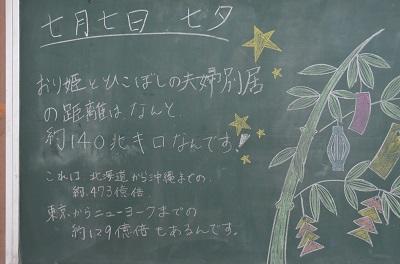 七月七日 七夕
おり姫とひこぼしの夫婦別居
の距離はなんと
約140兆キロなんです!
これは 北海道から沖縄までの
約473億倍
東京からニューヨークまでの
約129億倍もあるんです。